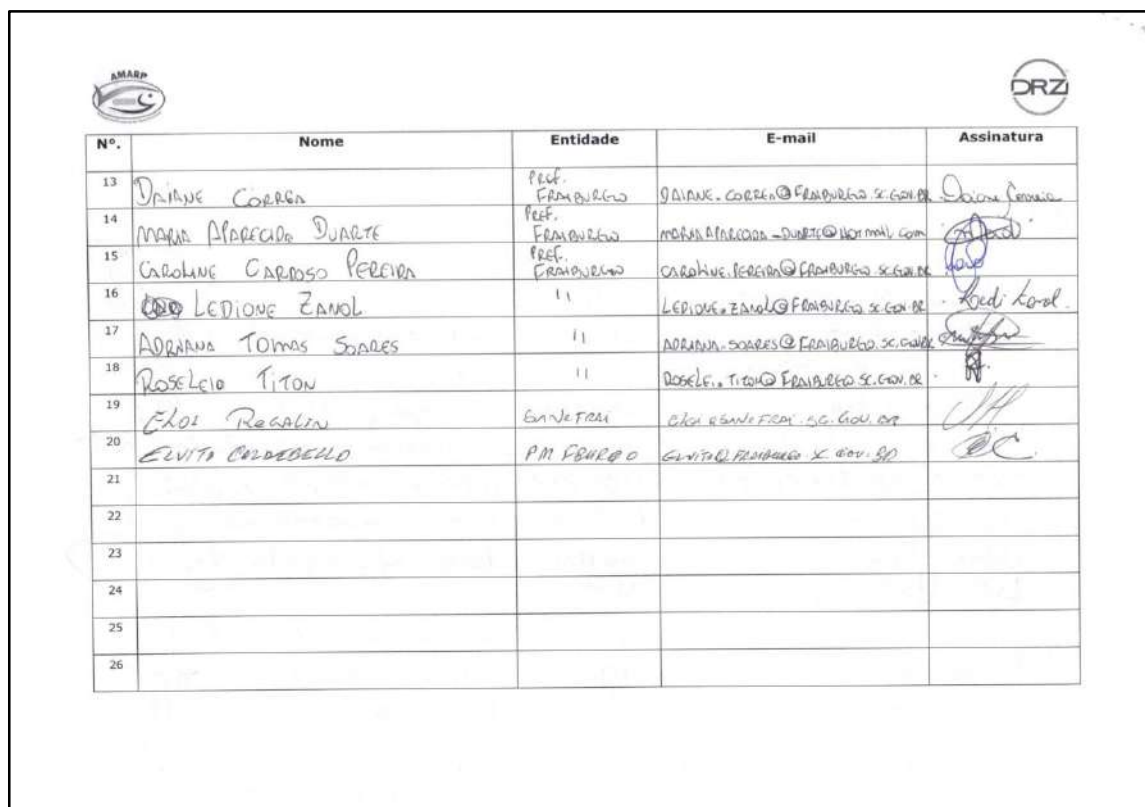 AMARP
DRZ
Nº. Nome Entidade E-mail Assinatura
13 DAIANE CORREA PREF. FRAIBURGO DAIANE.CORREA@FRAIBURGO.SC.GOV.BR Daiane Correia
14 MARIA APARECIDA DUARTE PREF. FRAIBURGO MARIAAPARECIDA-DUARTE@HOTMAIL.COM
15 CAROLINE CARDOSO PEREIRA PREF. FRAIBURGO CAROLINE.PEREIRA@FRAIBURGO.SC.GOV.BR
16 LEDIONE ZANOL 11 LEDIONE.ZANOL@FRAIBURGO.SC.GOV.BR
17 ADRIANA TOMAS SOARES 11 ADRIANA.SOARES@FRAIBURGO.SC.GOV.BR
18 ROSELEIO TITON 11 ROSELEI.TITON@FRAIBURGO.SC.GOV.BR
19 ELOI REGALIN SANEFRAI ELOI@SANEFRAI.SC.GOV.BR
20 ELVITO COLDEBELLO PM FBURGO ELVITO@FRAIBURGO.SC.GOV.BR
21
22
23
24
25
26